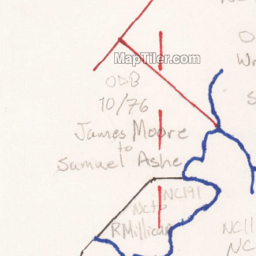 MapTiler.com
ODB
10/76
James Moore
to
Samuel Ashe
NC191
NC to
RMillican
NC11
NC